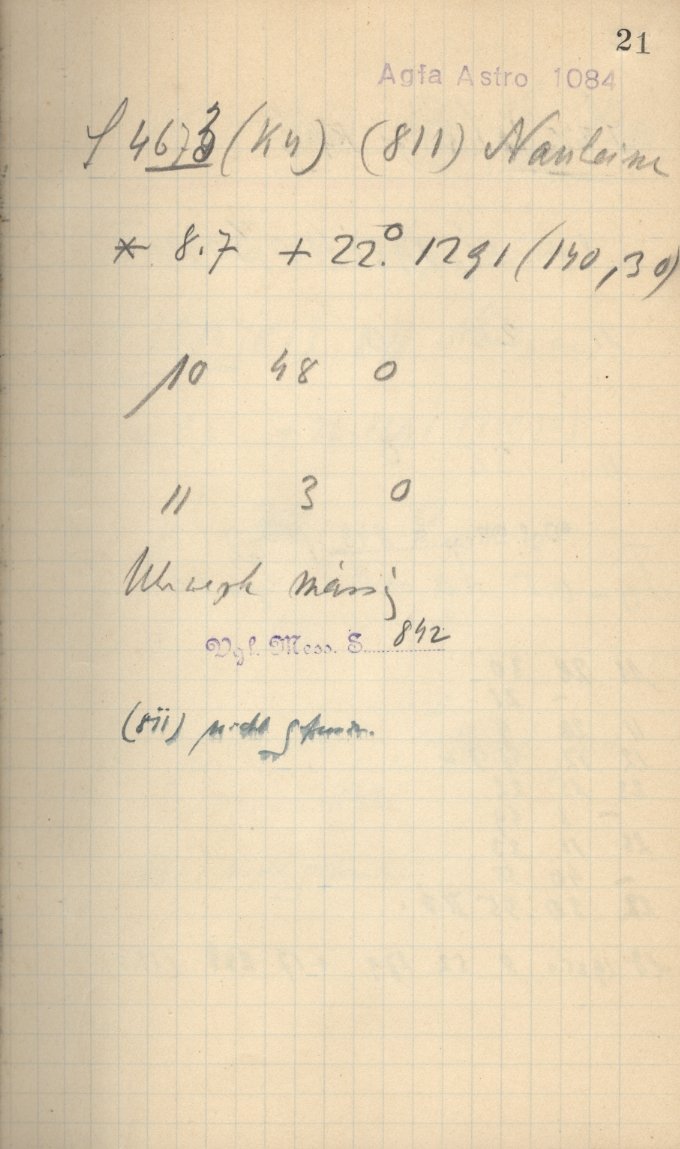 21
Agfa Astro 1084
4673 (K4) (811) Nauheima
* 8.7 + 22.° 1291 (140,30)
10 48 0
11 3 0
Uhrwerk mässig
Vgl. Mess. S. 842
(811) nicht gefunden.